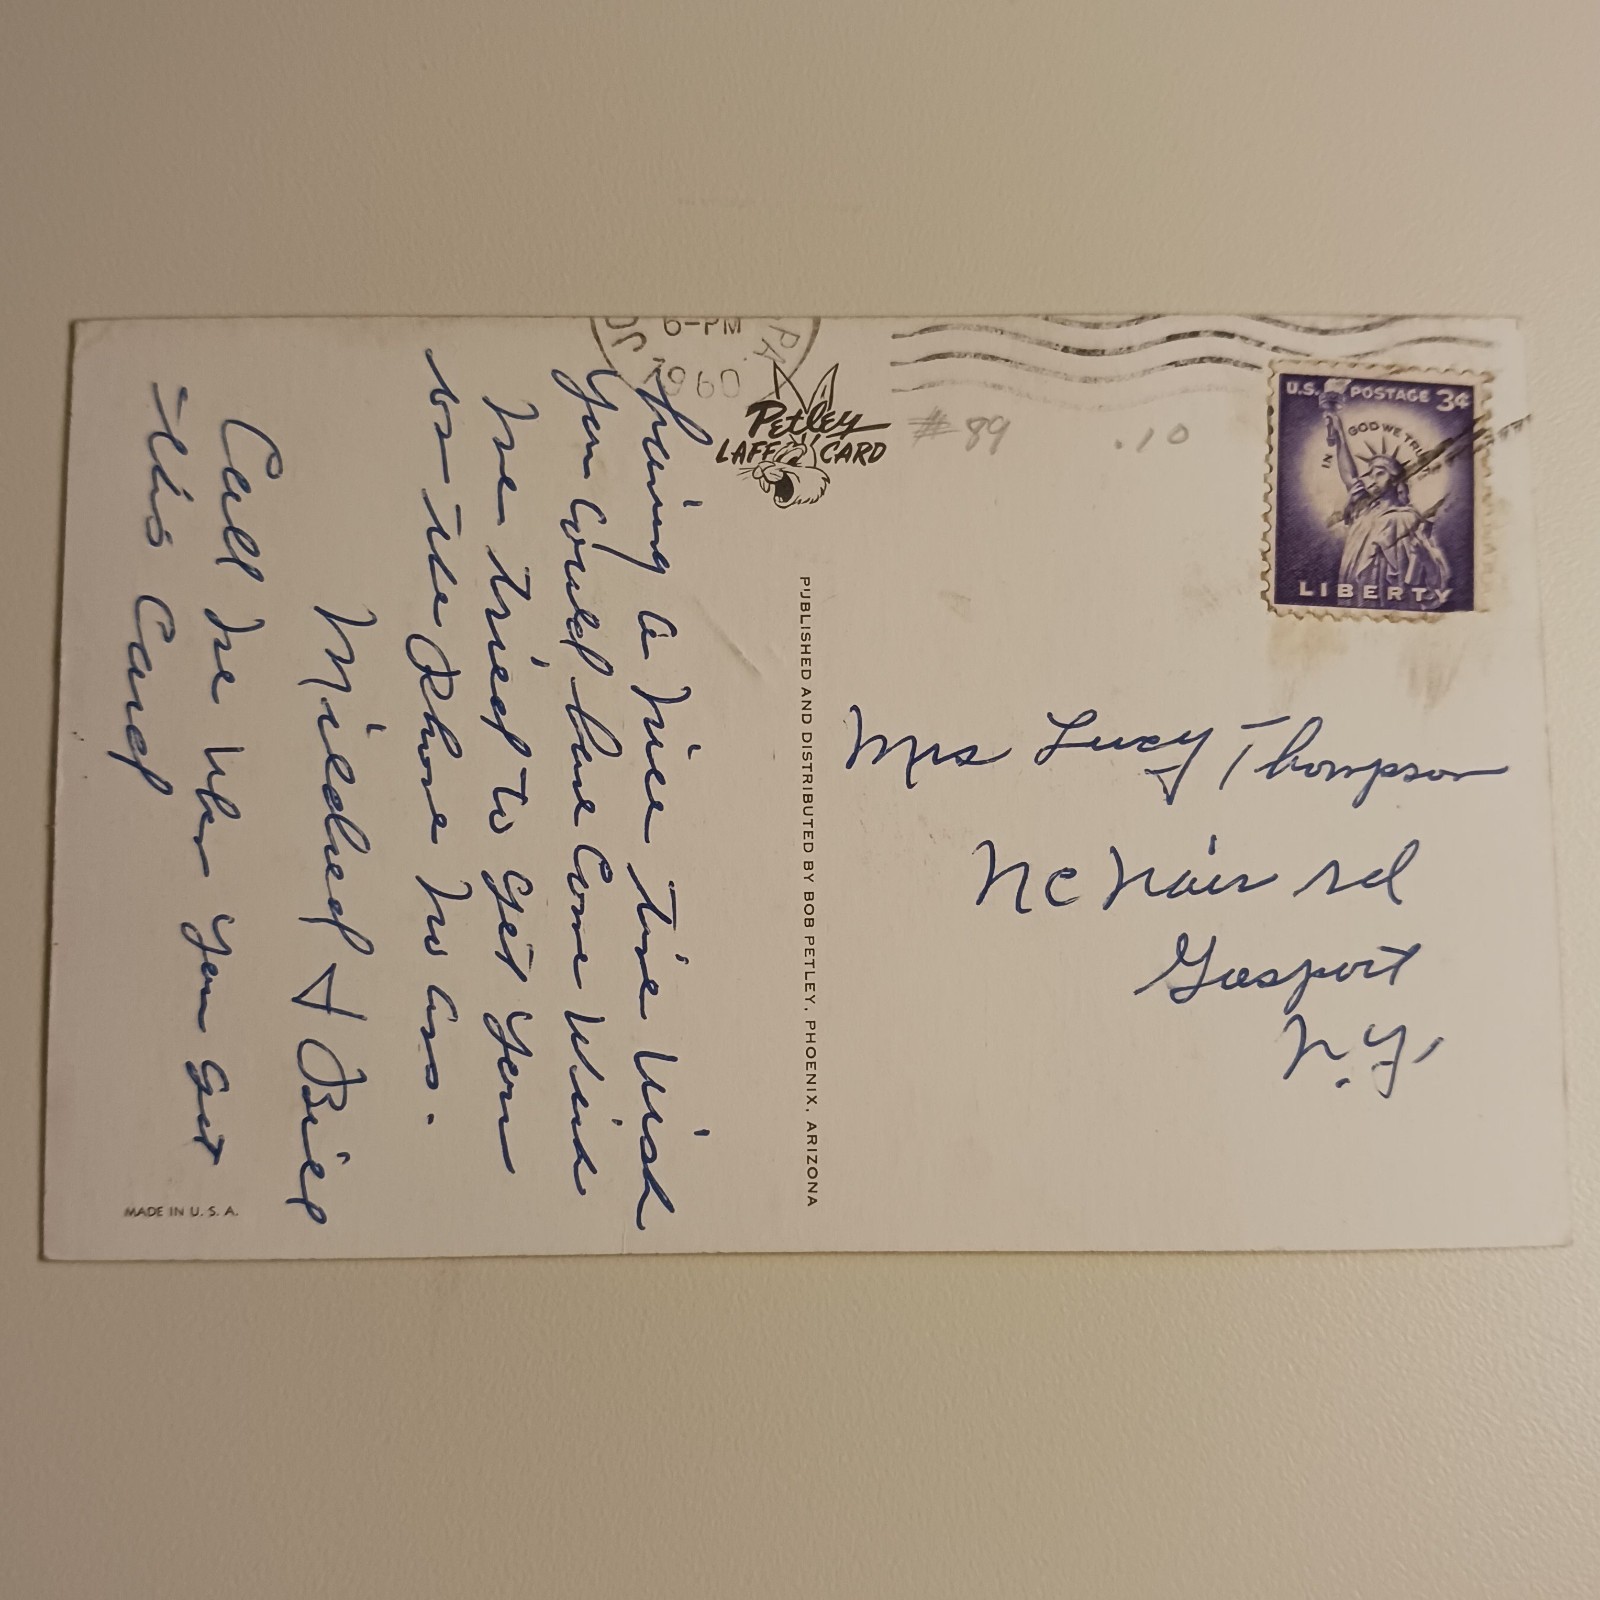 6-PM
1960
PA
Petley
LAFF CARD
# 89
.10
U.S. POSTAGE 3¢
IN GOD WE TRUST
LIBERTY
Having a Nice time Wish
You Could have Come With
We tried to get you
on the Phone No ans.
Mildred + Bill
Call Me When You Get
this Card
PUBLISHED AND DISTRIBUTED BY BOB PETLEY, PHOENIX, ARIZONA
Mrs Lucy Thompson
Mc Nair rd
Gasport
N.Y.
MADE IN U. S. A.